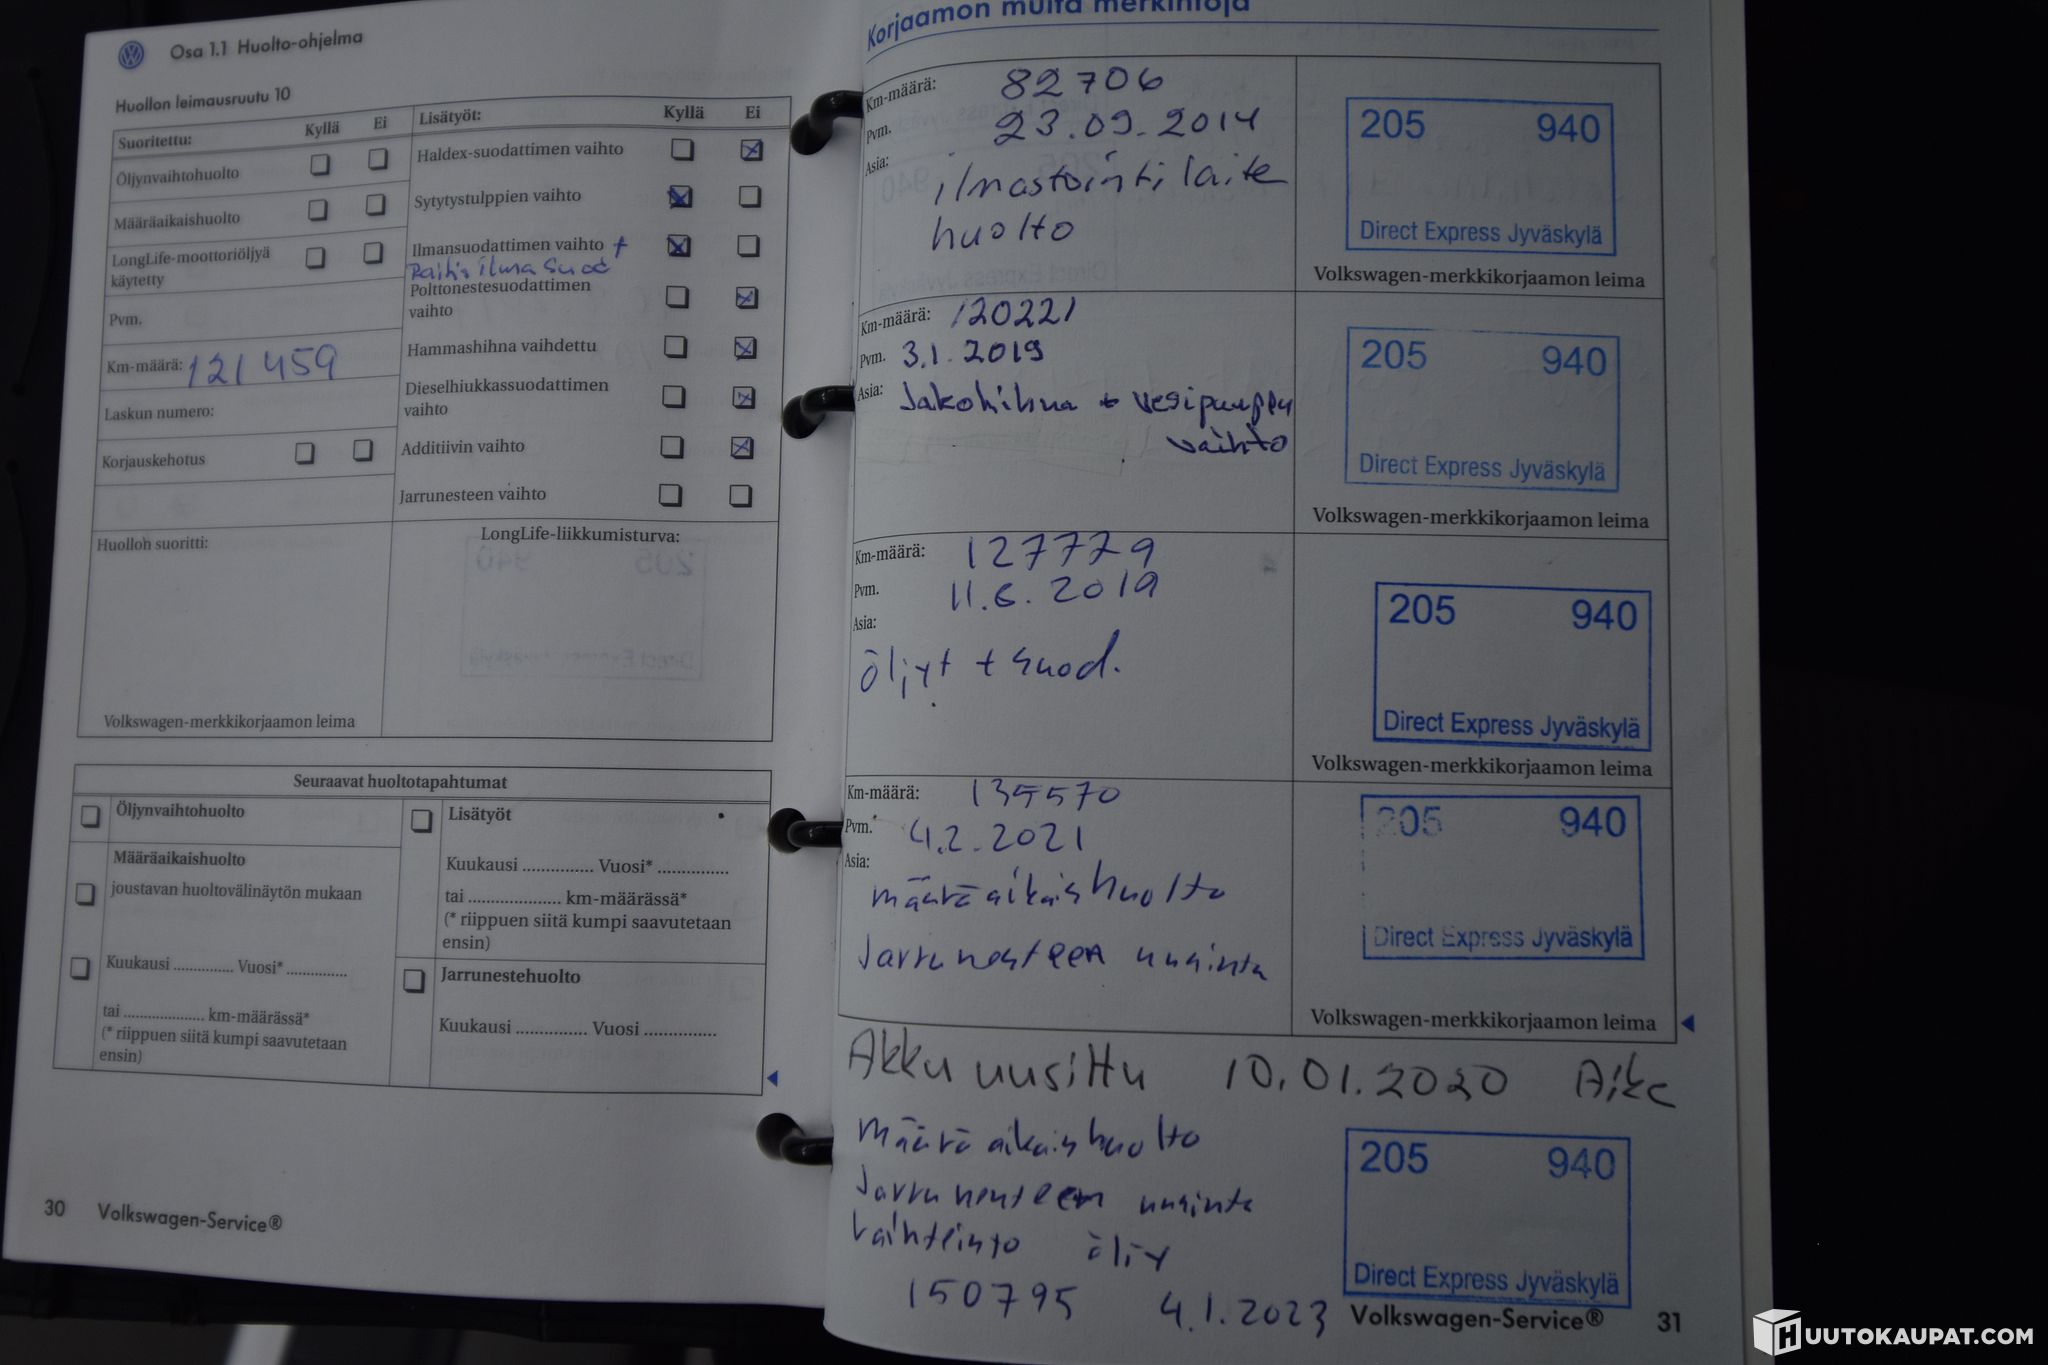 Osa 1.1 Huolto-ohjelma
Huollon leimausruutu 10
Suoritettu: Kyllä Ei
Öljynvaihtohuolto
Määräaikaishuolto
LongLife-moottoriöljyä
käytetty
Pvm.
Km-määrä: 121 459
Laskun numero:
Korjauskehotus
Huolloh suoritti:
Volkswagen-merkkikorjaamon leima
Lisätyöt: Kyllä Ei
Haldex-suodattimen vaihto
Sytytystulppien vaihto
Ilmansuodattimen vaihto +
Raitis ilma suod
Polttonestesuodattimen
vaihto
Hammashihna vaihdettu
Dieselhiukkassuodattimen
vaihto
Additiivin vaihto
Jarrunesteen vaihto
LongLife-liikkumisturva:
Seuraavat huoltotapahtumat
Öljynvaihtohuolto
Määräaikaishuolto
joustavan huoltovälinäytön mukaan
Kuukausi .............. Vuosi* ..............
tai .................... km-määrässä*
(* riippuen siitä kumpi saavutetaan
ensin)
Lisätyöt
Kuukausi ............... Vuosi* ...............
tai .................... km-määrässä*
(* riippuen siitä kumpi saavutetaan
ensin)
Jarrunestehuolto
Kuukausi ............... Vuosi ...............
30 Volkswagen-Service®
Korjaamon muita merkintöjä
Km-määrä: 82706
Pvm. 23.09.2014
Asia: ilmastointilaite
huolto
205 940
Direct Express Jyväskylä
Volkswagen-merkkikorjaamon leima
Km-määrä: 120221
Pvm. 3.1.2019
Asia: Jakohihna + vesipumpun
vaihto
205 940
Direct Express Jyväskylä
Volkswagen-merkkikorjaamon leima
Km-määrä: 127779
Pvm. 11.6.2019
Asia:
öljyt + suod.
205 940
Direct Express Jyväskylä
Volkswagen-merkkikorjaamon leima
Km-määrä: 135570
Pvm. 4.2.2021
Asia:
määräaikaishuolto
Jarrunesteen uusinta
205 940
Direct Express Jyväskylä
Volkswagen-merkkikorjaamon leima
Akku uusittu 10.01.2020
Määräaikaishuolto
Jarrunesteen uusinta
Vaihteisto öljy
150795 4.1.2023
205 940
Direct Express Jyväskylä
Volkswagen-Service® 31
HUUTOKAUPAT.COM